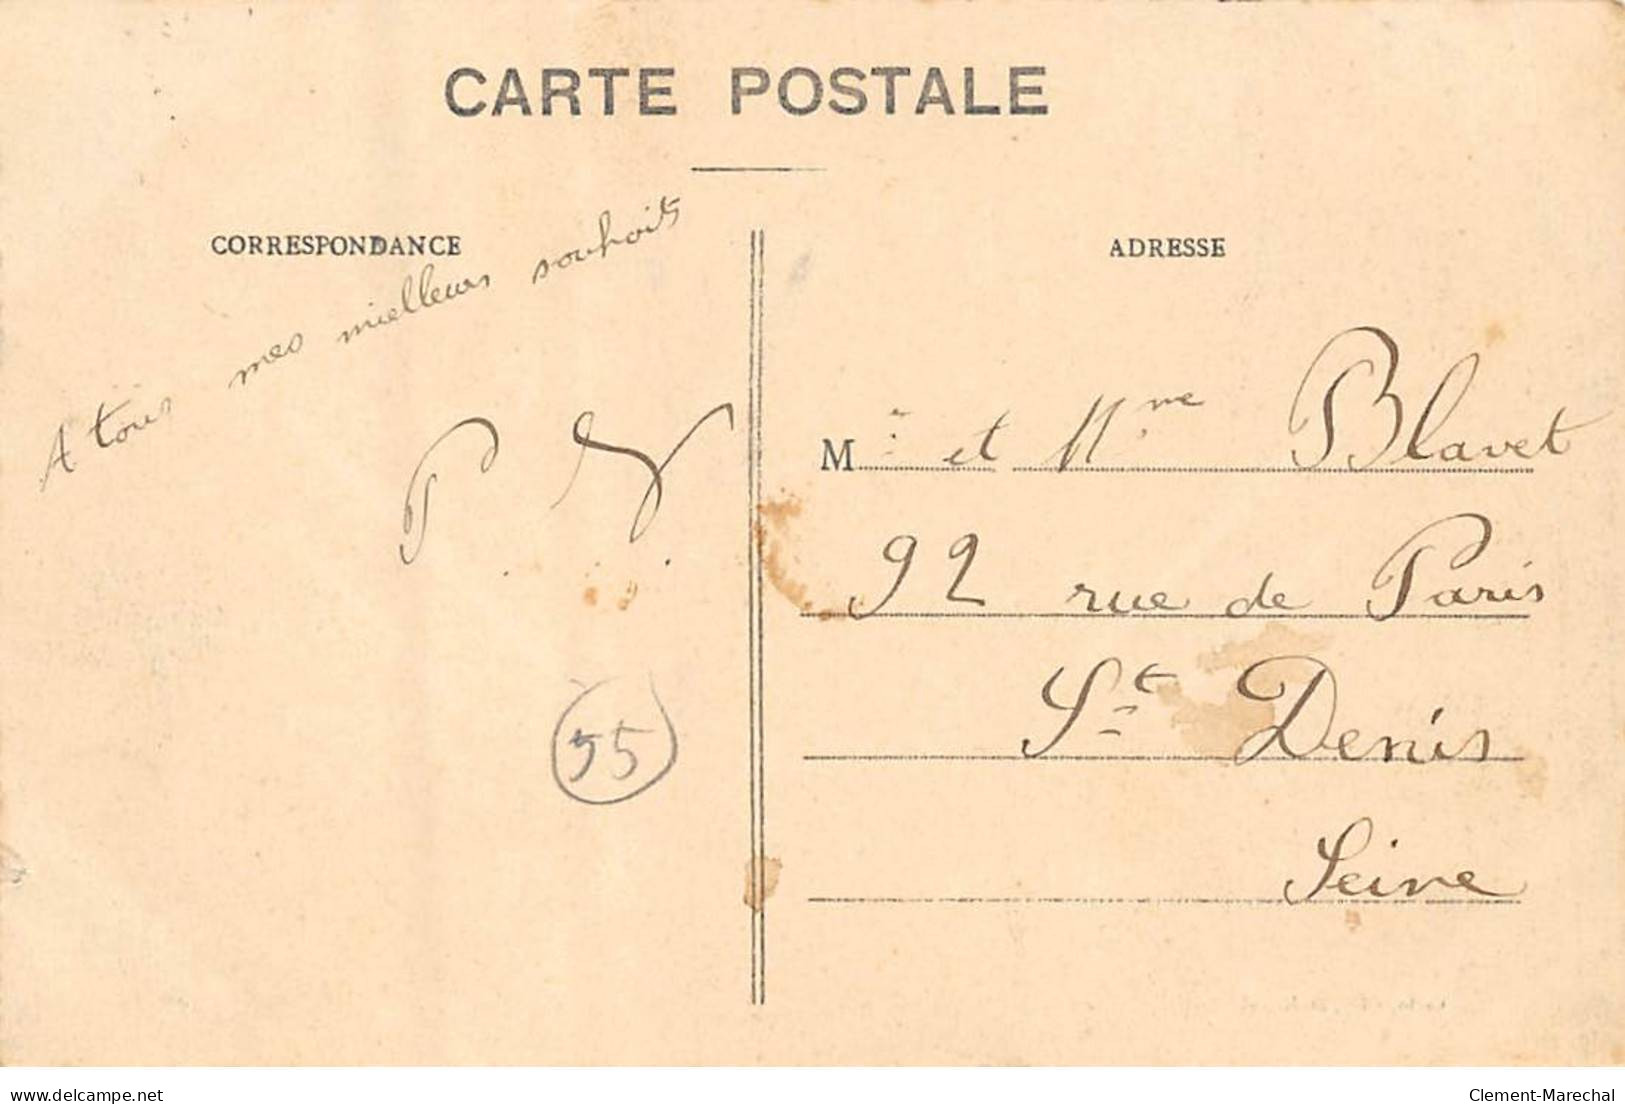 CARTE POSTALE
CORRESPONDANCE
A tous mes mielleurs souhoits
P. V.
55
ADRESSE
M r et Mme Blavet
92 rue de Paris
St Denis
Seine
delcampe.net
Clement-Marechal